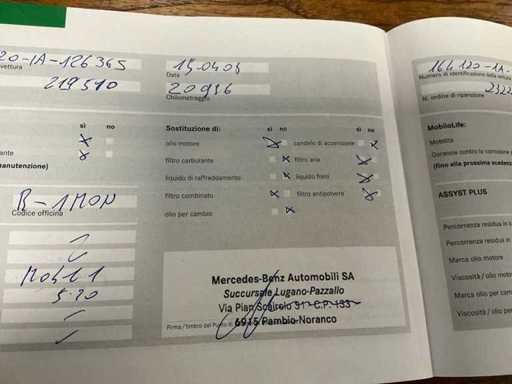 20-1A-126365
vettura
15.04.09
Data
219510
20996
Chilometraggio
sì no
Sostituzione di: sì no sì no
olio motore candele di accensione
ante
filtro carburante filtro aria
manutenzione)
liquido di raffreddamento liquido freni
filtro combinato filtro antipolvere
olio per cambio
R-1MON
Codice officina
Mobil 1
5-30
Mercedes-Benz Automobili SA
Succursale Lugano-Pazzallo
Via Pian Scairolo 31 - C.P. 133
6915 Pambio-Noranco
Firma / timbro del
164120-1A-
Numero di identificazione della vettura
N. ordine di riparazione
MobiloLife:
Mobilità
Garanzia contro la corrosione
(fino alla prossima scadenza
ASSYST PLUS
Percorrenza residua in
Percorrenza residua in
Marca olio motore
Viscosità / olio motore
Marca olio per cambio
Viscosità / olio per